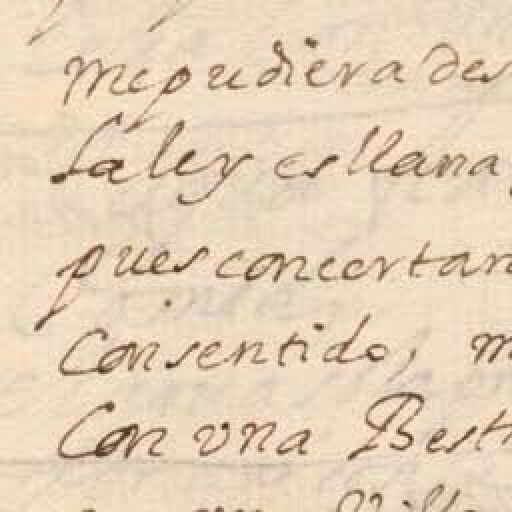 me pudiera des
La ley es llana
pues concertan
Consentido, m
Con vna Best